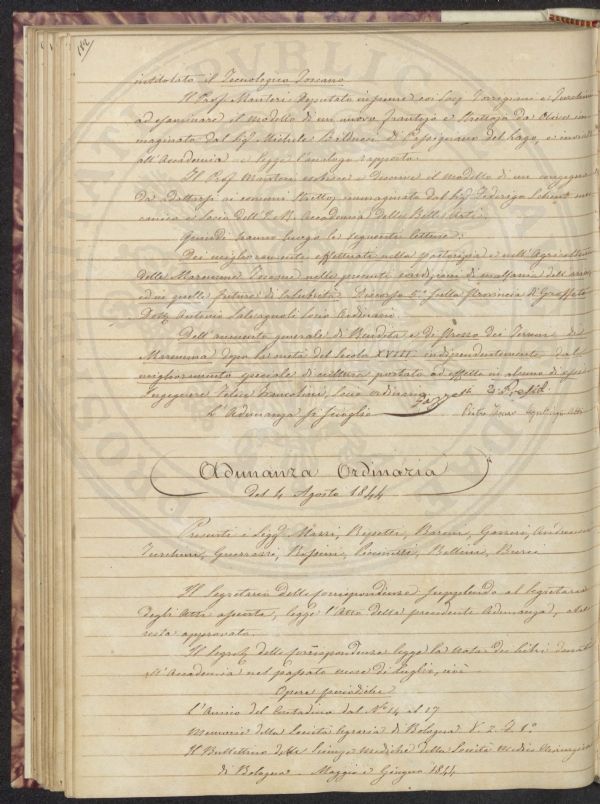 112
intitolato il Tecnologico Toscano
Il Prof. Manteri Deputato insieme coi Sigg. Torrigiani e Turchini
ad esaminare il modello di un nuovo frantojo e Strettojo da Olive im-
maginato dal Sig. Michele di del Lago, e inviato
all'Accademia legge l'analogo rapporto.
Il Prof. descrive il modello di un congegno
da ai comuni Strettoj immaginato dal Sig. Federigo me-
canico e Socio dell'I. e R. Accademia delle Belle Arti.
Quindi hanno luogo le seguenti letture:
Dei miglioramenti effettuati nella pastorizia e nell'Agricoltura
delle Maremme Toscane nelle presenti condizioni di malsania dell'aria,
ed in quelle future di salubrità. Discorso 5.° sulla Provincia di Grosseto
Dott. Antonio Salvagnoli Socio Ordinario.
Dell'aumento generale di Rendita e di Prezzo dei Terreni di
Maremma dopo la metà del Secolo XVIII indipendentemente dal
miglioramento speciale di cultura portato ad effetto in alcuno di essi
Ingegnere Felice Francolini, Socio ordinario
L'Adunanza si scioglie
Adunanza Ordinaria
del 4 Agosto 1844
Presenti i Sigg. Nazzi, Repetti, Baroni, Gazzeri,
Turchini, Guerrazzi, Rossini, Bellini, Burci
Il Segretario delle corrispondenze supplendo al Segretario
degli Atti assente, legge l'Atto della precedente Adunanza, che
resta approvato.
Il Segret. delle corrispondenze legge la nota dei Libri donati
all'Accademia nel passato mese di Luglio, cioè
Opere periodiche
L'Amico del Contadino dal N.° 14 al 17
Memorie della Società Agraria di Bologna V. 2. F. 1.°
Il Bullettino delle Scienze Mediche della Società Medico Chirurgica
di Bologna. Maggio e Giugno 1844